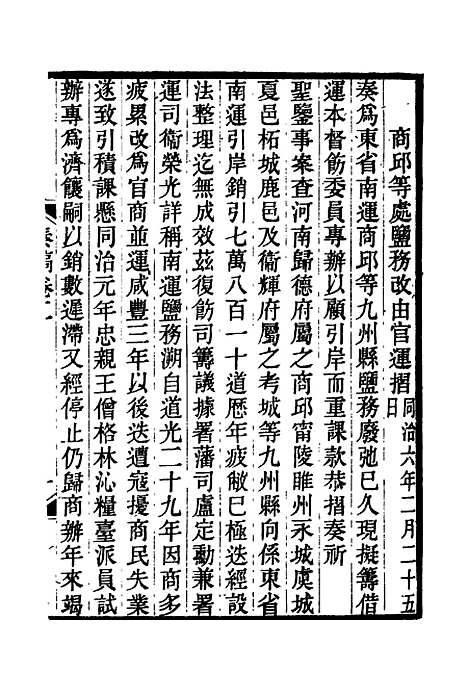 商邱等處鹽務改由官運摺同治六年二月二十五日
奏爲東省南運商邱等九州縣鹽務廢弛已久現擬籌借
運本督飭委員專辦以顧引岸而重課款恭摺奏祈
聖鑒事案查河南歸德府屬之商邱甯陵睢州永城虞城
夏邑柘城鹿邑及衞輝府屬之考城等九州縣向係東省
南運引岸銷引七萬八百一十道歷年疲敝已極迭經設
法整理迄無成效茲復飭司籌議據署藩司盧定勳兼署
運司衞榮光詳稱南運鹽務溯自道光二十九年因商多
疲累改爲官商並運咸豐三年以後迭遭寇擾商民失業
遂致引積課懸同治元年忠親王僧格林沁糧臺派員試
辦專爲濟饟嗣以銷數遲滯又經停止仍歸商辦年來竭
奏稿卷